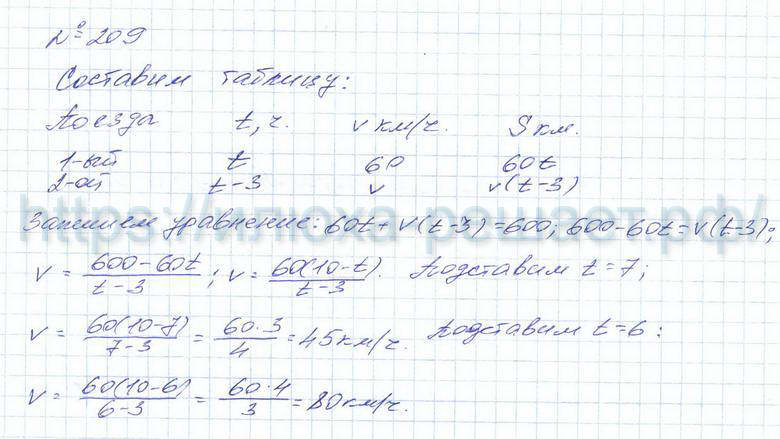 № 209
Составим таблицу:
Поезда t, ч. v км/ч. S км.
1-ый t 60 60t
2-ой t-3 v v(t-3)
Запишем уравнение: 60t + v(t-3) = 600; 600-60t = v(t-3);
v = (600-60t)/(t-3); v = 60(10-t)/(t-3). Подставим t=7;
v = 60(10-7)/(7-3) = 60·3/4 = 45 км/ч. Подставим t=6:
v = 60(10-6)/(6-3) = 60·4/3 = 80 км/ч.
https://илюха-решает.рф/